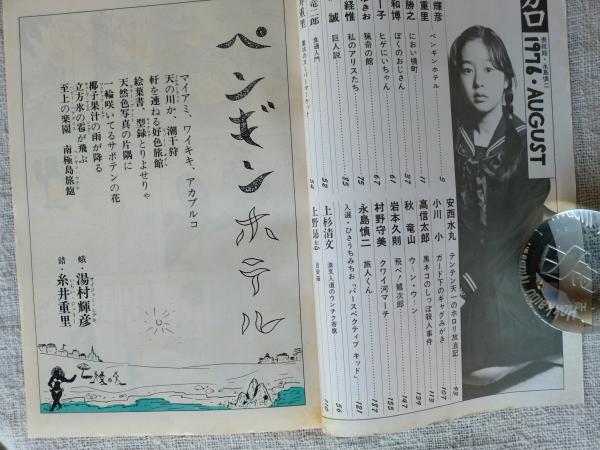 ガロ
1976・AUGUST
輝彦
重里 ペンギンホテル 5
勝之 におい横町
和博 ぼくのおじさん
一子 ヒゲにいちゃん 61
きお 猟奇の館 67
経惟 私のアリスたち 75
誠 巨人説 85
竜二郎 食通入門 52
井重里
安西水丸 テンテン天一のホロリ放浪記 93
小川 小 ガード下のギャグみがき 107
高信太郎 黒ネコのしっぽ殺人事件 113
秋 竜山 ウ・ン・ウーン 139
岩本久則 飛べ!鷲次郎 147
村野守美 クワイ河マーチ 155
永島慎二 旅人くん 187
入選・ひさうちみちお 「パースペクティブ キッド」 121
上杉清文 洪文入道のウンチク寄席 56
上野昂志 目安箱 110
ペンギンホテル
マイアミ、ワイキキ、アカプルコ
天の川か、潮干狩
軒を連ねる好色旅館
絵葉書、型録とりよせりゃ
天然色写真の片隅に
一輪咲いてるサボテンの花
椰子果汁の雨が降る
立方氷の雹が飛ぶ
至上の楽園 南極島旅館
蛾・湯村輝彦
錯・糸井重里